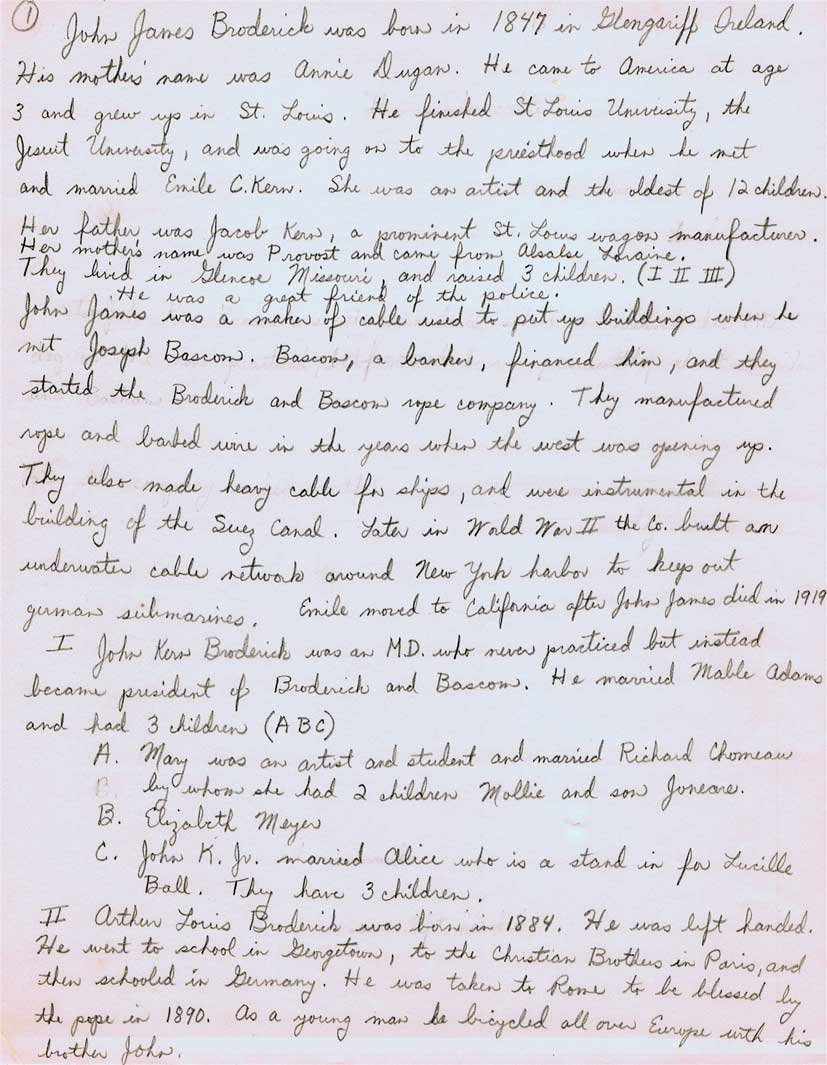 1
John James Broderick was born in 1847 in Glengariff Ireland.
His mothers' name was Annie Dugan. He came to America at age
3 and grew up in St. Louis. He finished St Louis University, the
Jesuit University, and was going on to the priesthood when he met
and married Emile C. Kern. She was an artist and the oldest of 12 children.
Her father was Jacob Kern, a prominent St. Louis wagon manufacturer.
Her mother's name was Provost and came from Alsalse Loraine.
They lived in Glencoe Missouri, and raised 3 children. (I II III)
He was a great friend of the police.
John James was a maker of cable used to put up buildings when he
met Joseph Bascom. Bascom, a banker, financed him, and they
started the Broderick and Bascom rope company. They manufactured
rope and barbed wire in the years when the west was opening up.
They also made heavy cable for ships, and were instrumental in the
building of the Suez Canal. Later in World War II the Co. built an
underwater cable network around New York harbor to keep out
german submarines. Emile moved to California after John James died in 1919
I John Kern Broderick was an M.D. who never practiced but instead
became president of Broderick and Bascom. He married Mable Adams
and had 3 children (A B C)
A. Mary was an artist and student and married Richard Chomeau
by whom she had 2 children Mollie and son
B. Elizabeth Meyer
C. John K. Jr. married Alice who is a stand in for Lucille
Ball. They have 3 children.
II Arthur Louis Broderick was born in 1884. He was left handed.
He went to school in Georgetown, to the Christian Brothers in Paris, and
then schooled in Germany. He was taken to Rome to be blessed by
the pope in 1890. As a young man he bicycled all over Europe with his
brother John.